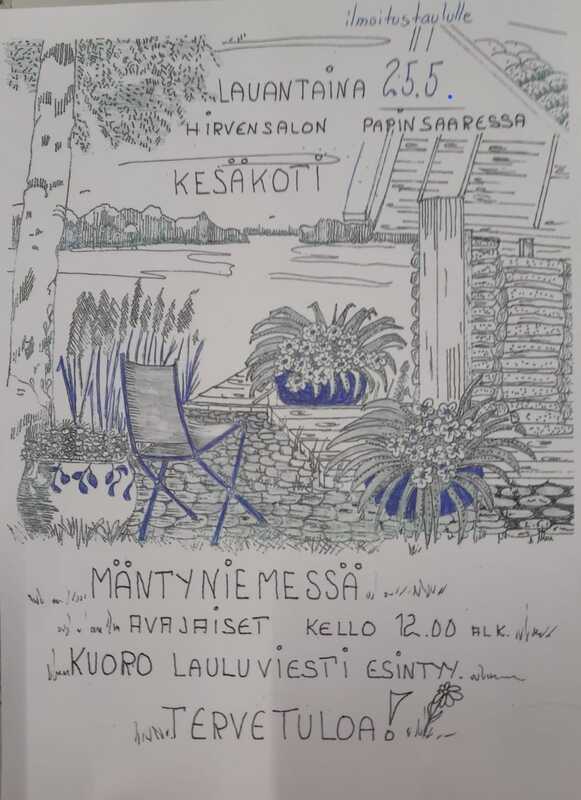 ilmoitustaululle
LAUANTAINA 25.5.
HIRVENSALON PAPINSAARESSA
KESÄKOTI
MÄNTYNIEMESSÄ
AVAJAISET KELLO 12.00 ALK.
KUORO LAULUVIESTI ESINTYY.
TERVETULOA!